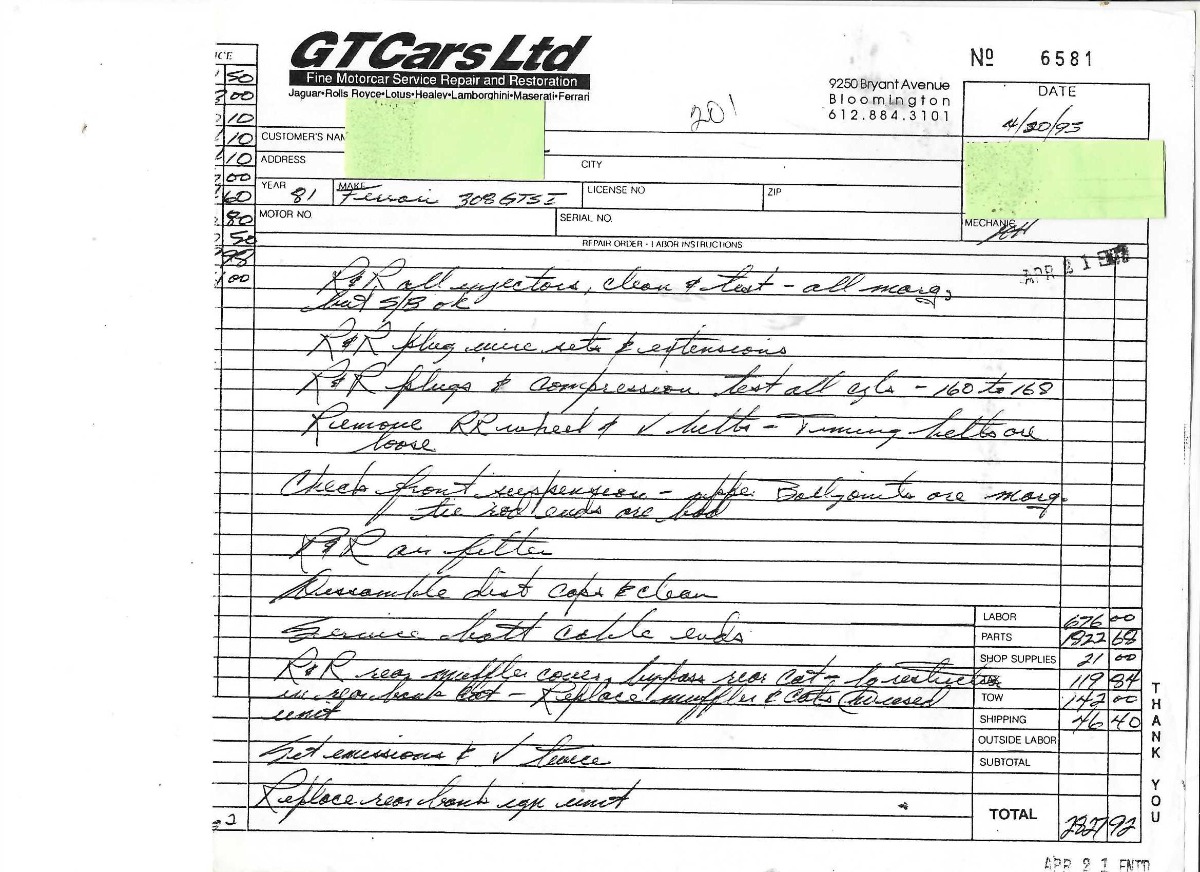 GTCars Ltd
Fine Motorcar Service Repair and Restoration
Jaguar•Rolls Royce•Lotus•Healey•Lamborghini•Maserati•Ferrari
201
9250 Bryant Avenue
Bloomington
612.884.3101
Nº 6581
DATE
4/20/93
CUSTOMER'S NAM
ADDRESS
CITY
YEAR 81
MAKE Ferrari 308 GTSI
LICENSE NO
ZIP
MOTOR NO.
SERIAL NO.
MECHANIC
REPAIR ORDER - LABOR INSTRUCTIONS
APR 21
R&R all injectors, clean & test - all marg,
but S/B ok
R&R plug wire sets & extensions
R&R plugs & compression test all cyls - 160 to 168
Remove RR wheel & √ belts - Timing belts are
loose
Check front suspension - upper Balljoints are marg.
tie rod ends are bad
R&R air filter
Dissamble dist caps & clean
Service batt cable ends
R&R rear muffler cover, bypass rear cat -
in rear bank cat - Replace muffler & cats
unit
Set emissions & √ twice
Replace rear bank ign unit
ICE
50
00
10
10
10
00
60
80
50
98
00
LABOR 676 00
PARTS 1822 68
SHOP SUPPLIES 21 00
119 84
TOW 142 00
SHIPPING 46 40
OUTSIDE LABOR
SUBTOTAL
TOTAL 2827 92
THANK YOU
APR 21 ENTD